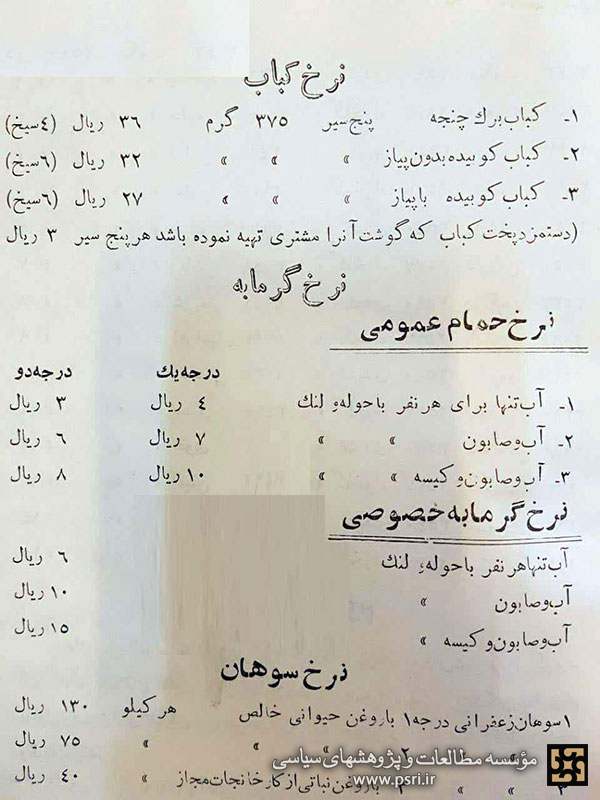 نرخ کباب
۱ـ کباب برك چنجه پنج سیر ۳۷۵ گرم ۳۶ ریال (٤سیخ)
۲ـ کباب کوبیده بدون پیاز » » » ۳۲ ریال (٦سیخ)
۳ـ کباب کوبیده با پیاز » » » ۲۷ ریال (٦سیخ)
(دستمزد پخت کباب که گوشت آنرا مشتری تهیه نموده باشد هر پنج سیر ۳ ریال
نرخ گرمابه
نرخ حمام عمومی
درجه یك درجه دو
۱ـ آب تنها برای هر نفر با حوله و لنك ٤ ریال ۳ ریال
۲ـ آب و صابون » » ۷ ریال ٦ ریال
۳ـ آب و صابون و کیسه » » ۱۰ ریال ۸ ریال
نرخ گرمابه خصوصی
آب تنها هر نفر با حوله و لنك ٦ ریال
آب و صابون » ۱۰ ریال
آب و صابون و کیسه » ۱۵ ریال
نرخ سوهان
۱ سوهان زعفرانی درجه ۱ با روغن حیوانی خالص هر کیلو ۱۳۰ ریال
» » ۲ » » » ۷۵ ریال
۳ » » ۳ با روغن نباتی از کارخانجات مجاز » ٤۰ ریال
مؤسسه مطالعات و پژوهشهای سیاسی
www.psri.ir